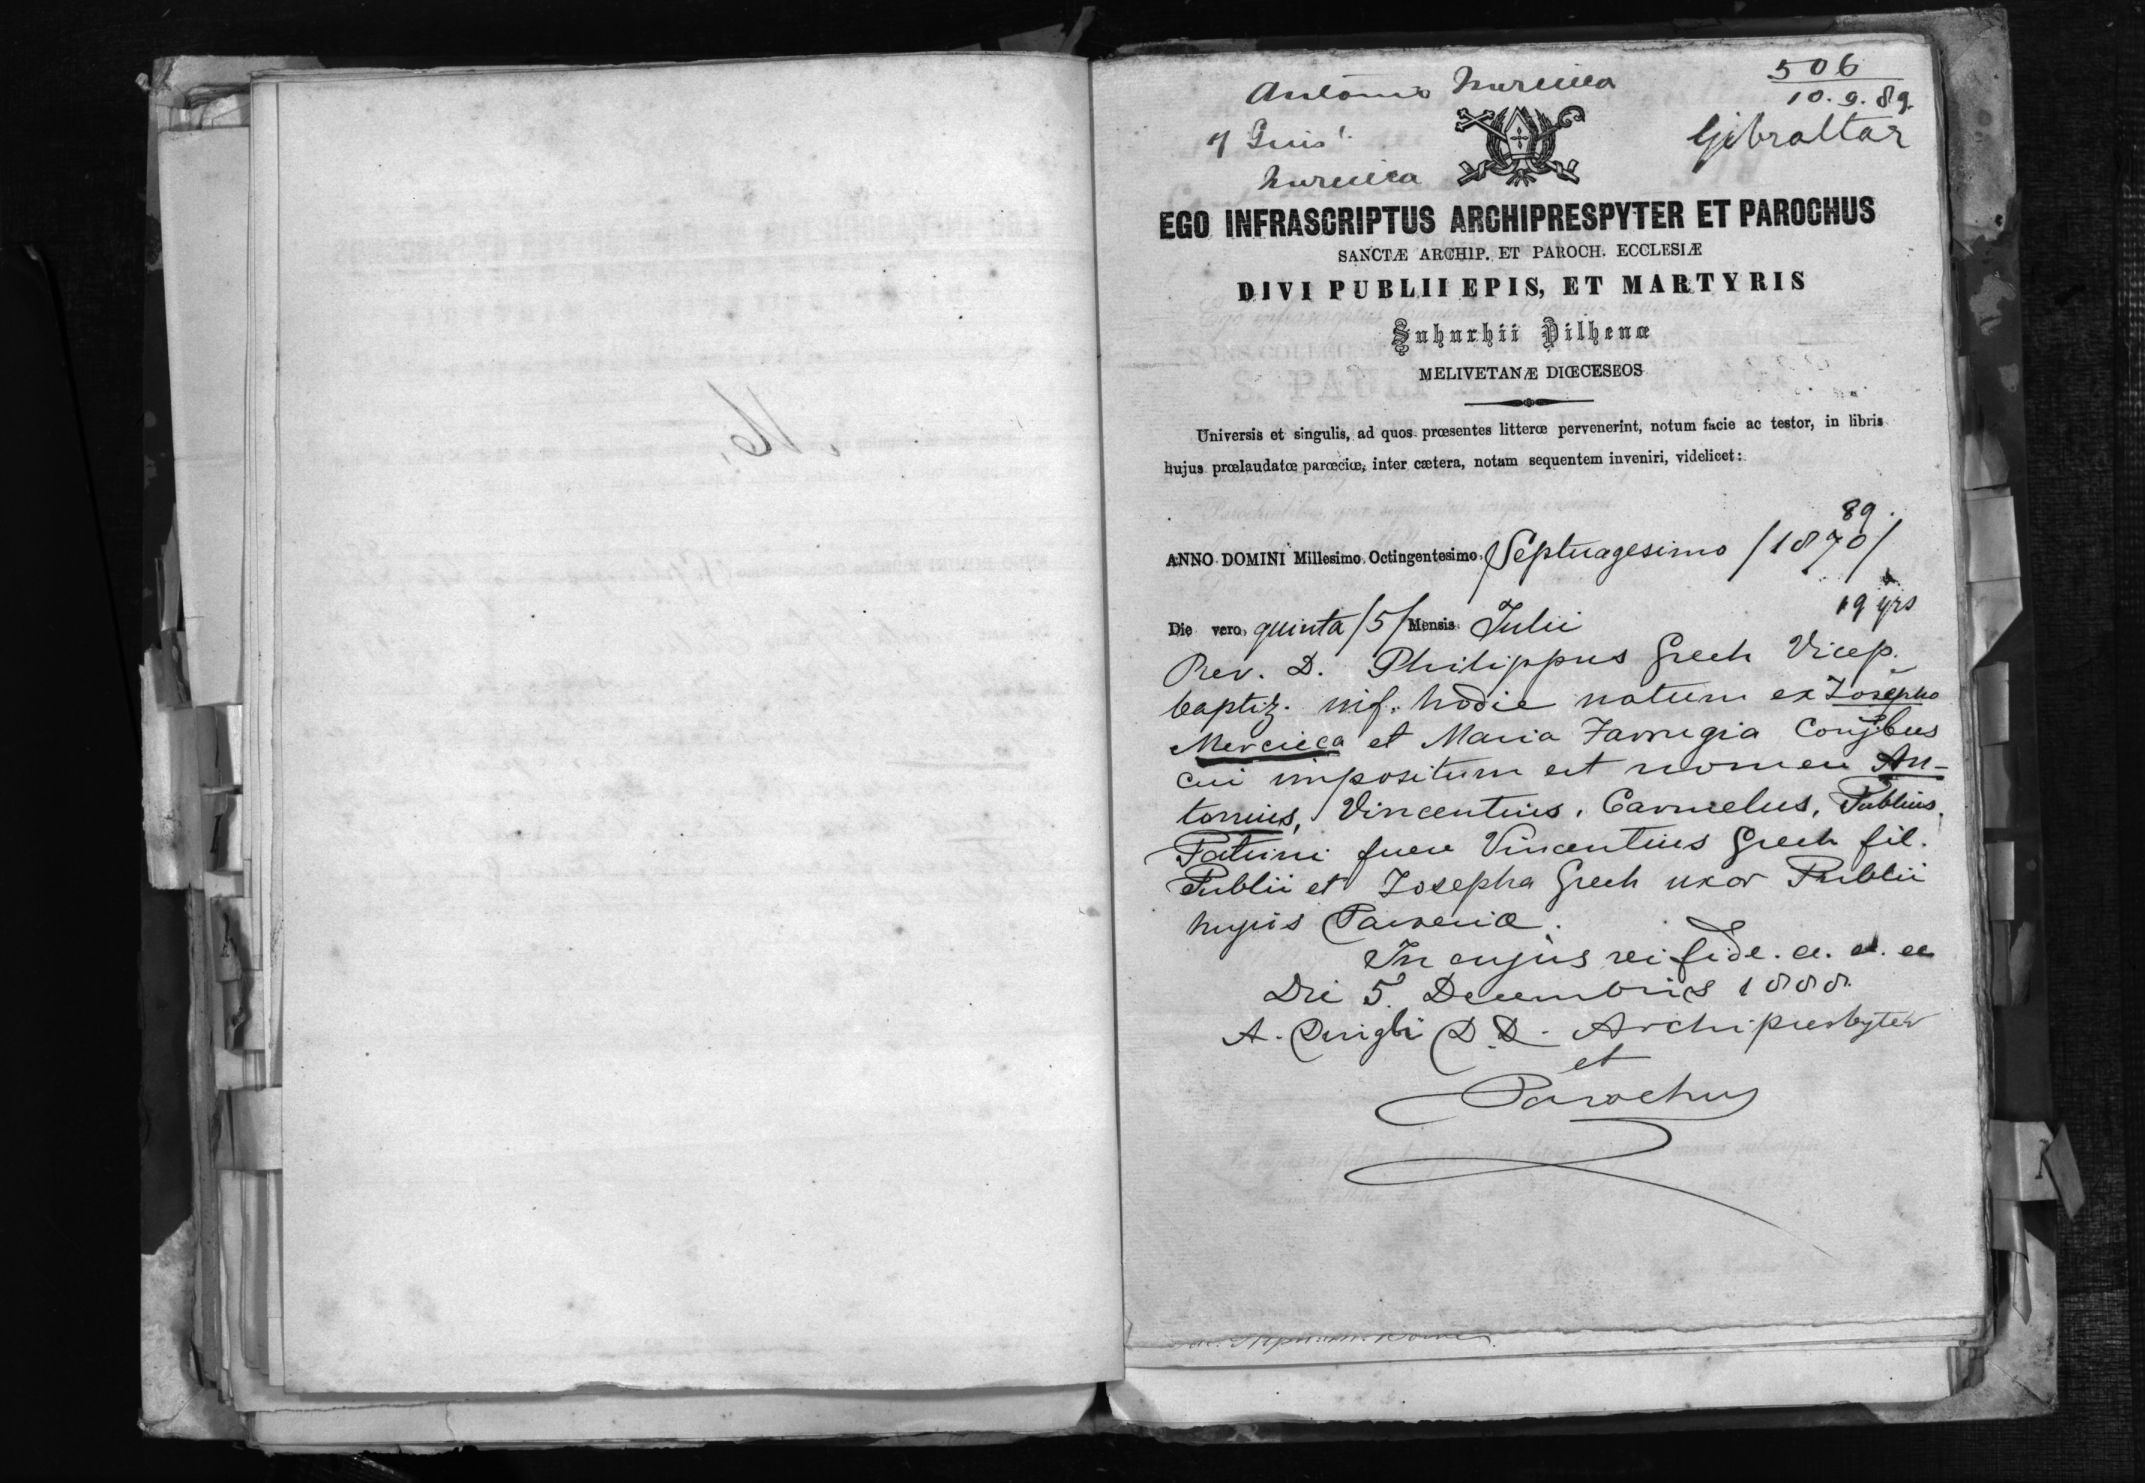 Antonio Murcieca
506
10.9.89.
of Guis.
Gibraltar
Murcieca
EGO INFRASCRIPTUS ARCHIPRESPYTER ET PAROCHUS
SANCTÆ ARCHIP. ET PAROCH. ECCLESIÆ
DIVI PUBLII EPIS, ET MARTYRIS
Suburbii Vilhenæ
MELIVETANÆ DIŒCESEOS
Universis et singulis, ad quos prœsentes litterœ pervenerint, notum facie ac testor, in libris
hujus prœlaudatœ parœciœ, inter cætera, notam sequentem inveniri, videlicet:
89.
ANNO DOMINI Millesimo Octingentesimo, Septuagesimo /1870/
19 yrs
Die vero, quinta /5/ Mensis Julii
Rev. D. Philippus Grech Vicep.
baptiz. inf. hodie natum ex Josepho
Mercieca et Maria Farrugia Conjbus
cui impositum est nomen An-
tonius, Vincentius, Carmelus, Publius.
Patrini fuere Vincentius Grech fil.
Publii et Josepha Grech uxor Publii
hujus Parœciæ.
In cujus rei fide. a. a. a
Die 5. Decembris 1888.
A. Buigli D. D. Archipresbyter
et
Parochus